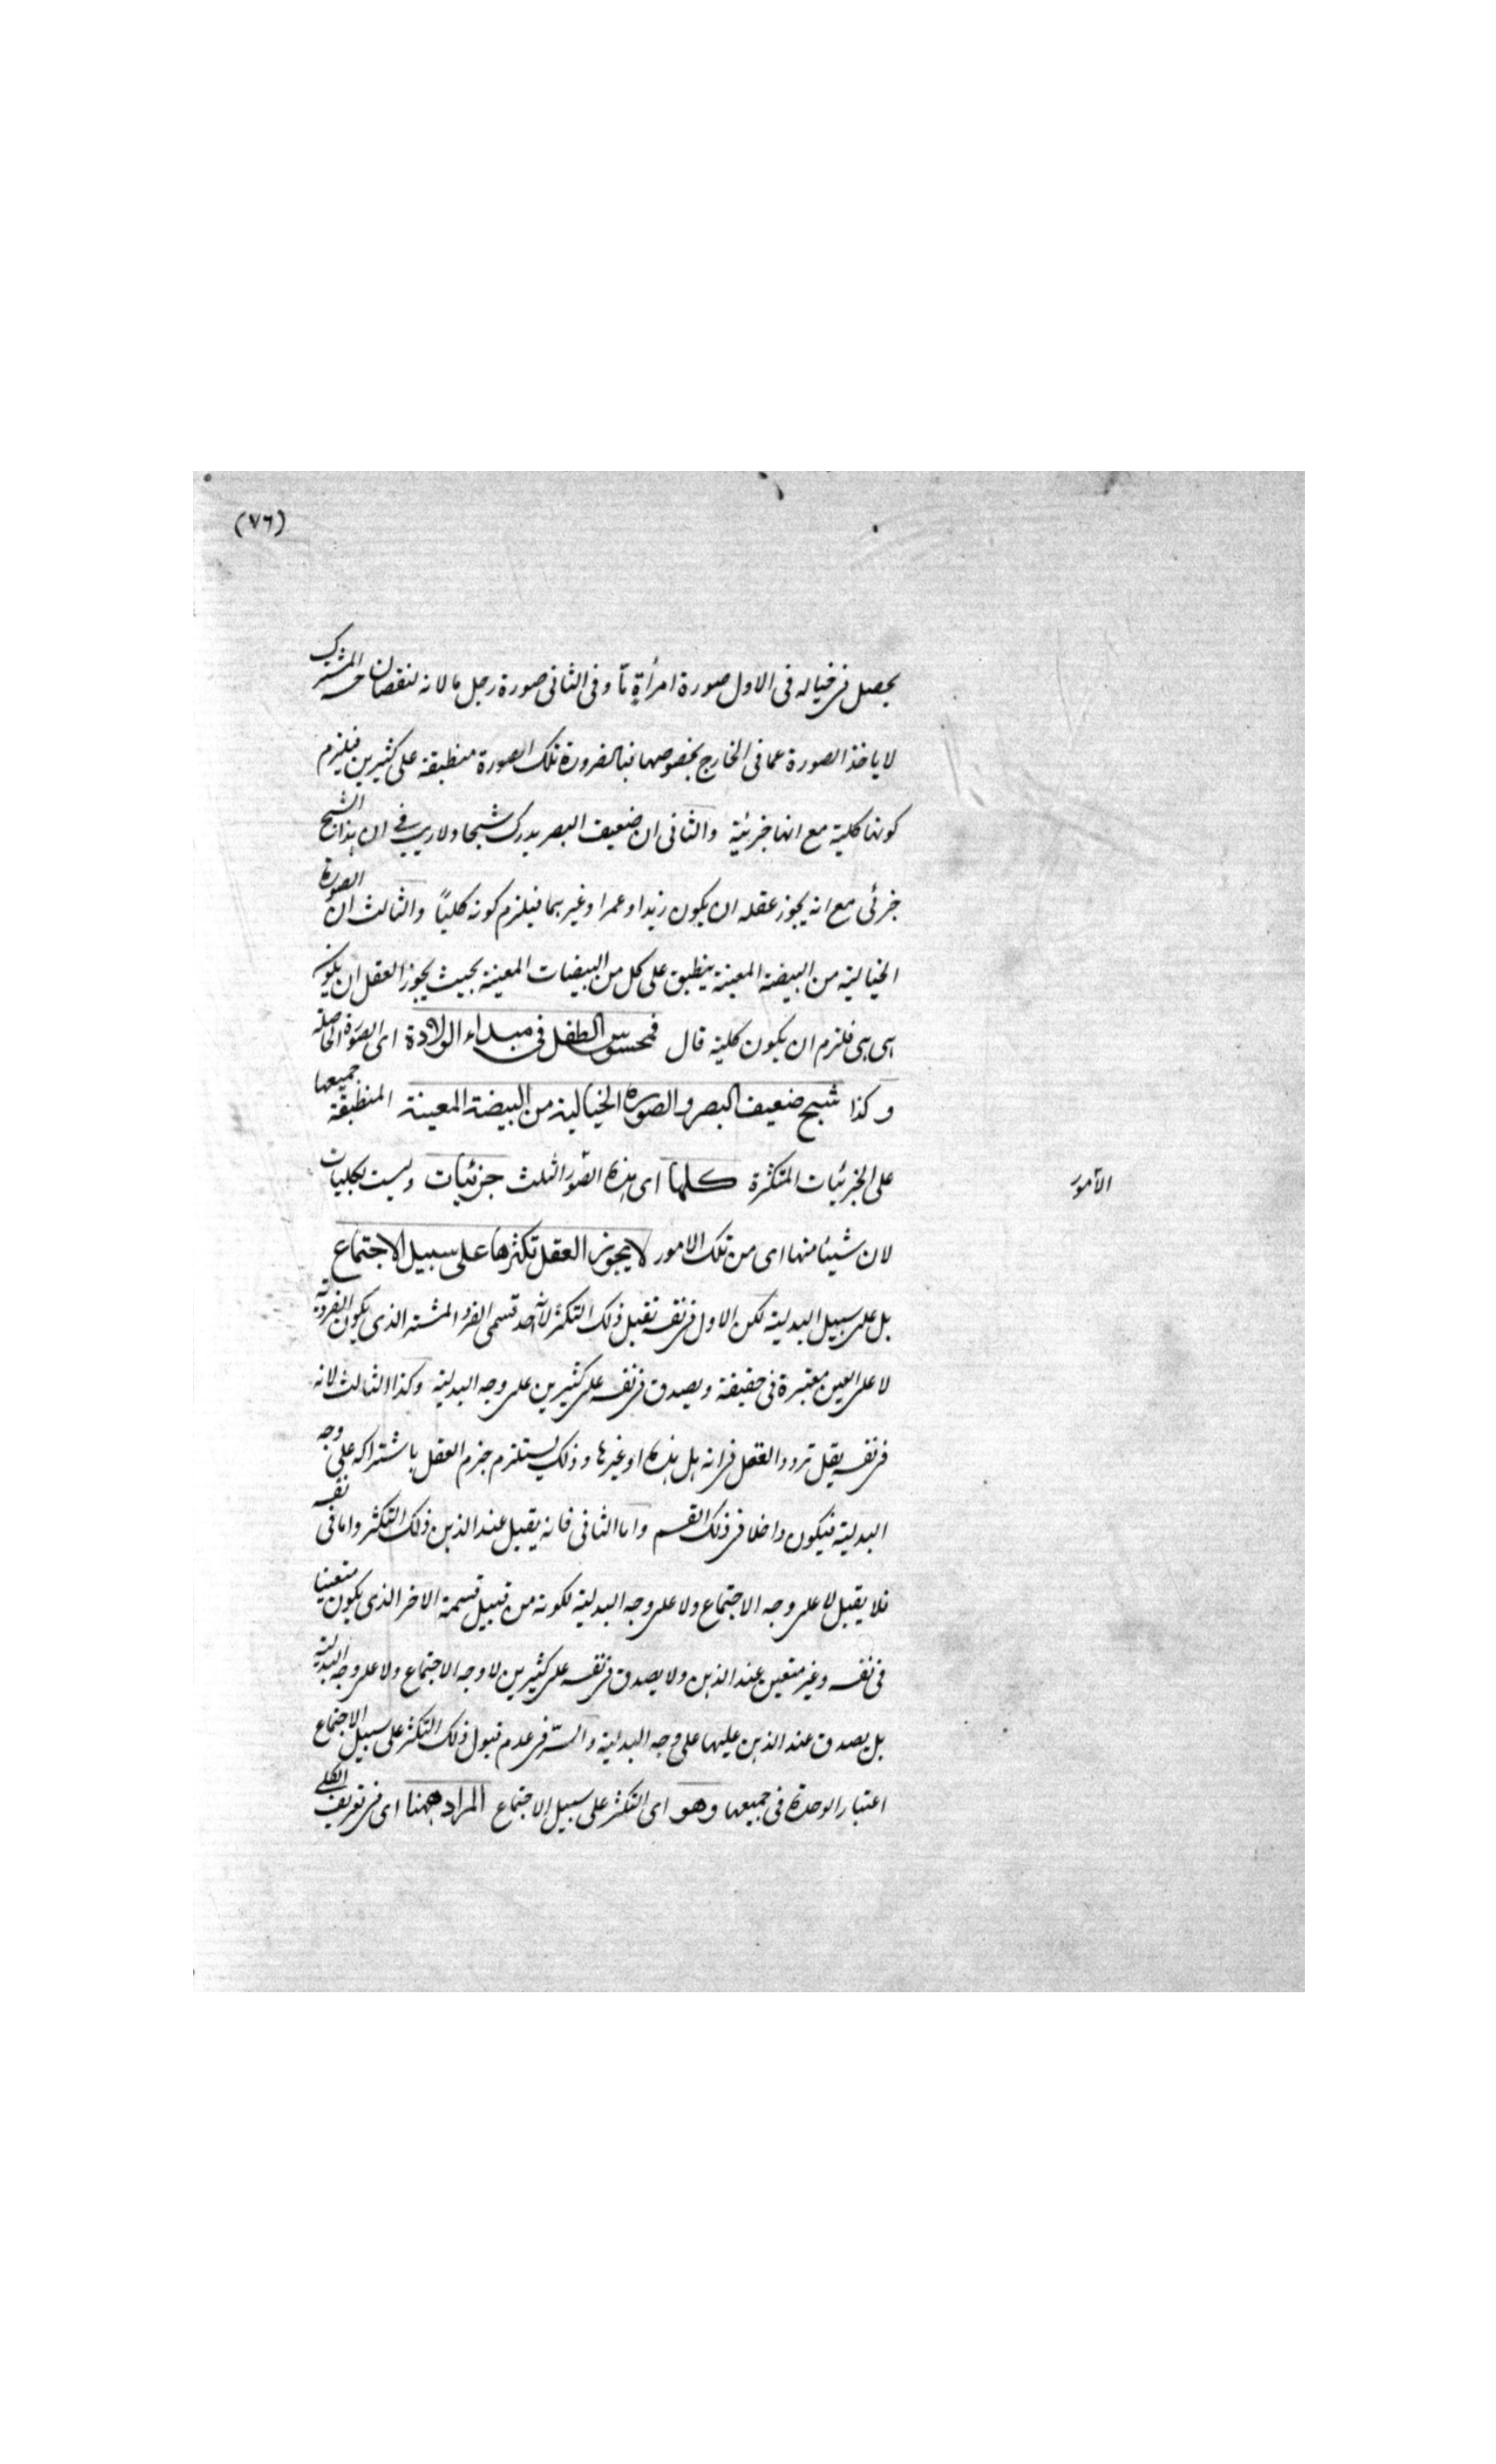 (٧٦)
يحصل فى خياله فى الاول صورة امرأة مّا وفى الثانى صورة رجل ما لانه لنقصان حسه المشترك
لا ياخذ الصورة عما فى الخارج بخصوصها فبالضرورة تلك الصورة منطبقة على كثيرين فيلزم
كونها كلية مع انها جزئية والثانى ان ضعيف البصر يدرك شبحا ولا ريب فى ان هذا الشبح
جزئى مع انه يجوز عقله ان يكون زيدا وعمرا وغيرهما فيلزم كونه كليًا والثالث ان الصورة
الخيالية من البيضة المعينة ينطبق على كل من البيضات المعينة بحيث يجوز العقل ان يكون
هى هى فلزم ان يكون كلية قال فمحسوس الطفل فى مبداء الولادة اى الصورة الحاصلة
وكذا شبح ضعيف البصر والصورة الخيالية من البيضة المعينة المنطبقة جميعها
على الجزئيات المتكثرة كلها اى هذه الصّور الثلث جزئيات وليست بكليات
الأمور
لان شيئا منها اى من تلك الامور لا يجوز العقل تكثرها على سبيل الاجتماع
بل على سبيل البدلية لكن الاول فى نفسه تقبل ذلك التكثر لانه احد قسمى الفرد المنتشر الذى يكون الفردية
لا على التعين معتبرة فى حقيقته ويصدق فى نفسه على كثيرين على وجه البدلية وكذا الثالث لانه
فى نفسه يقبل تردد العقل فى انه هل هذه او غيرها وذلك يستلزم جزم العقل باشتراكه على وجه
البدلية فيكون داخلا فى ذلك القسم واما الثانى فانه يقبل عند الذهن ذلك التكثر واما فى نفسه
فلا يقبل لا على وجه الاجتماع ولا على وجه البدلية لكونه من قبيل قسمة الاخر الذى يكون متعينا
فى نفسه وغير متعين عند الذهن ولا يصدق فى نفسه على كثيرين لا وجه الاجتماع ولا على وجه البدلية
بل يصدق عند الذهن عليها على وجه البدلية والسّر فى عدم قبول ذلك التكثر على سبيل الاجتماع
اعتبار الوحدة فى جميعها وهو اى التكثر على سبيل الاجتماع المراد ههنا اى فى تعريف الكلى